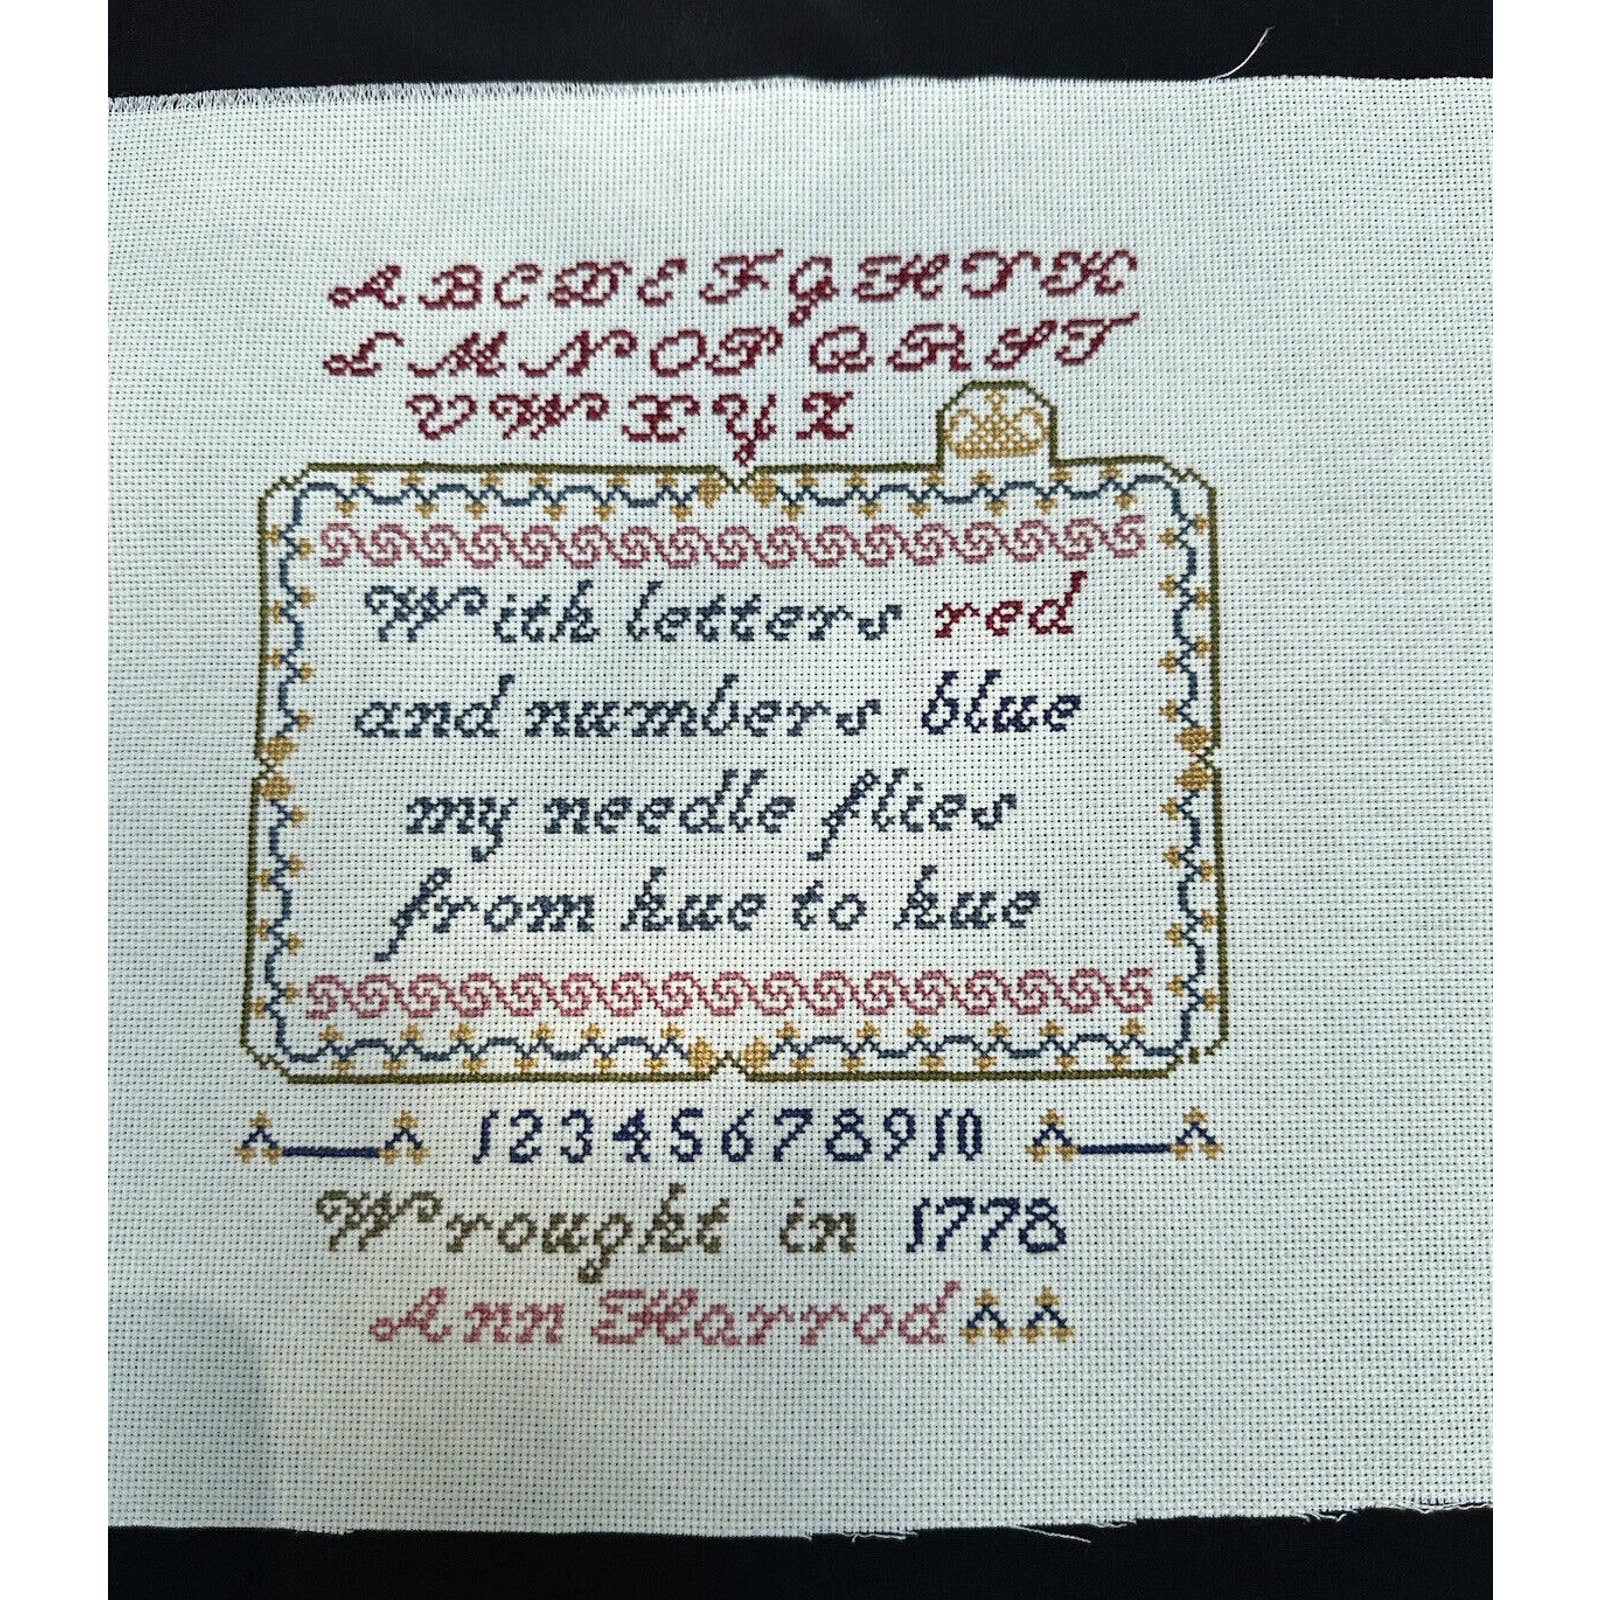 A B C D E F G H I K
L M N O P Q R S T
V W X Y Z
With letters red
and numbers blue
my needle flies
from hue to hue
1 2 3 4 5 6 7 8 9 10
Wrought in 1778
Ann Harrod